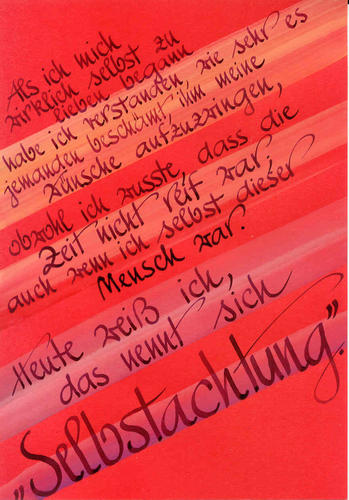 Als ich mich
wirklich selbst zu
lieben begann
habe ich verstanden, wie sehr es
jemanden beschämt, ihm meine
Wünsche aufzuzwingen,
obwohl ich wusste, dass die
Zeit nicht reif war,
auch wenn ich selbst dieser
Mensch war.
Heute weiß ich,
das nennt sich
„Selbstachtung".